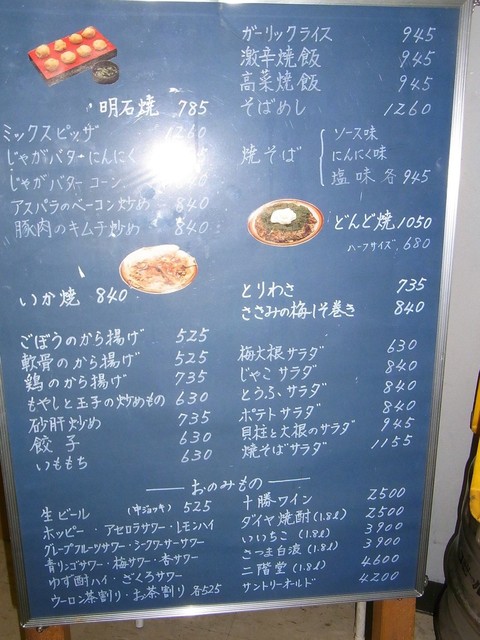 明石焼 785
ミックスピッザ 1260
じゃがバターにんにく
じゃがバターコーン
アスパラのベーコン炒め 840
豚肉のキムチ炒め 840
いか焼 840
ごぼうのから揚げ 525
軟骨のから揚げ 525
鶏のから揚げ 735
もやしと玉子の炒めもの 630
砂肝炒め 735
餃子 630
いももち 630
ガーリックライス 945
激辛焼飯 945
高菜焼飯 945
そばめし 1260
焼そば
ソース味
にんにく味
塩味 各945
どんど焼 1050
ハーフサイズ 680
とりわさ 735
ささみの梅しそ巻き 840
梅大根サラダ 630
じゃこサラダ 840
とうふサラダ 840
ポテトサラダ 840
貝柱と大根のサラダ 945
焼そばサラダ 1155
おのみもの
生ビール (中ジョッキ) 525
ホッピー・アセロラサワー・レモンハイ
グレープフルーツサワー・シークワーサーサワー
青リンゴサワー・梅サワー・杏サワー
ゆず酎ハイ・ざくろサワー
ウーロン茶割り・お茶割り 各525
十勝ワイン 2500
ダイヤ焼酎(1.8ℓ) 2500
いいちこ(1.8ℓ) 3900
さつま白波(1.8ℓ) 3900
二階堂(1.8ℓ) 4600
サントリーオールド 4200